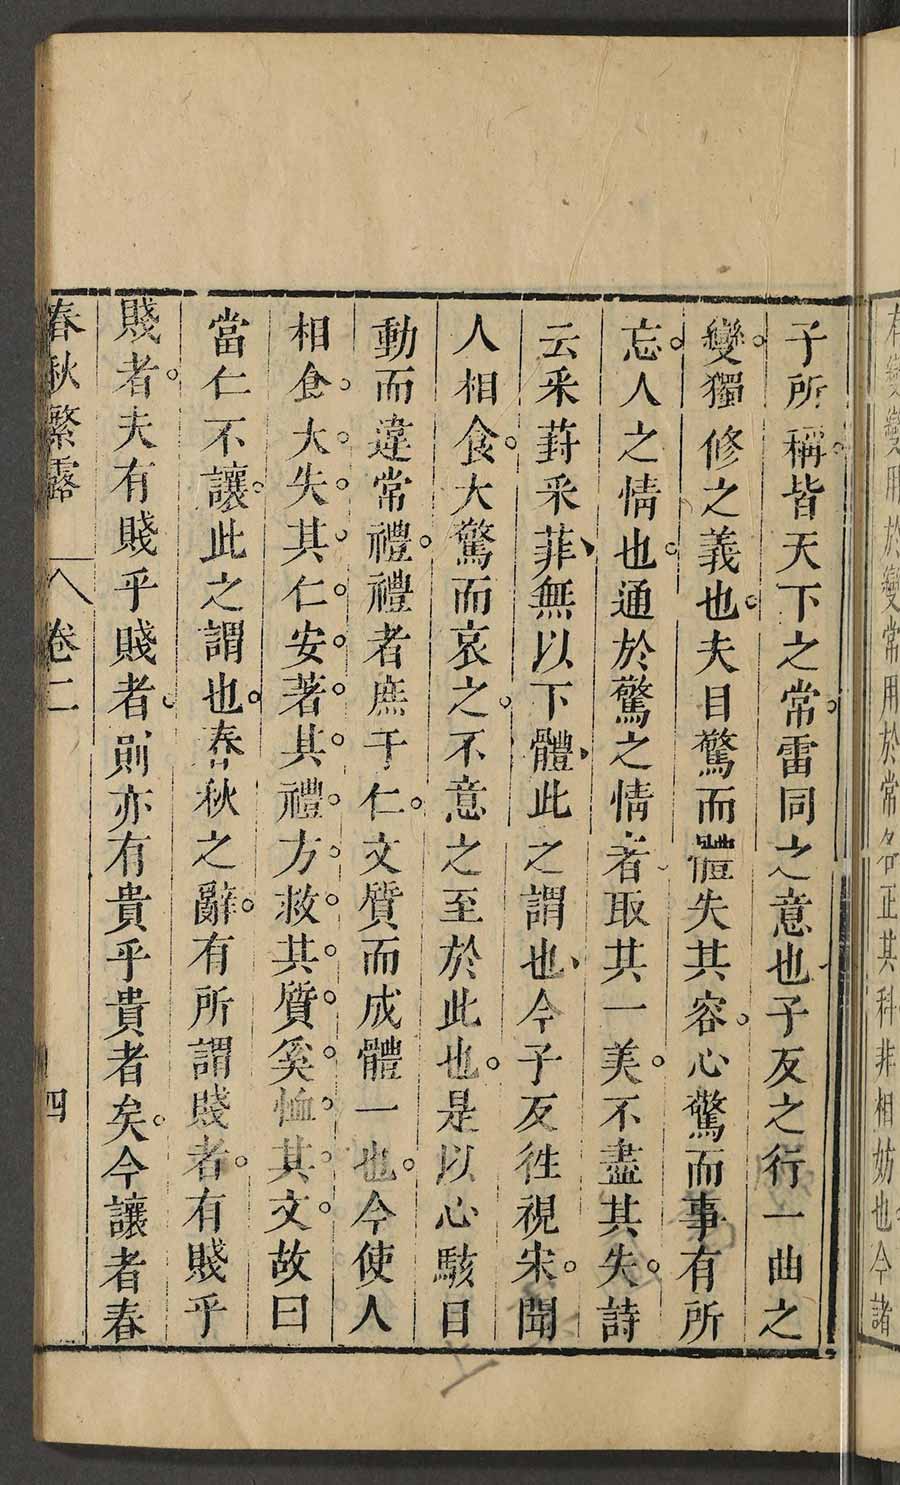 有變變用於變常用於常各正其科非相妨也今諸
子所稱。皆天下之常。雷同之意也、子反之行一曲之
變。獨修之義也。夫目驚而體失其容。心驚而事有所
忘。人之情也。通於驚之情者取其一美。不盡其失。詩
云采葑采菲、無以下體、此之謂也、今子反往視宋。聞
人相食。大驚而哀之。不意之至於此也。是以心駭目
動而違常禮。禮者庶于仁。文質而成體一也。今使人
相食。大。失。其。仁。安。著。其。禮。方。救。其。質。奚。恤。其。文。故曰
當仁不讓。此之謂也。春秋之辭。有所謂賤者。有賤乎
賤者。夫有賤乎賤者。則亦有貴乎貴者矣。今讓者春
春秋繁露 卷二 四